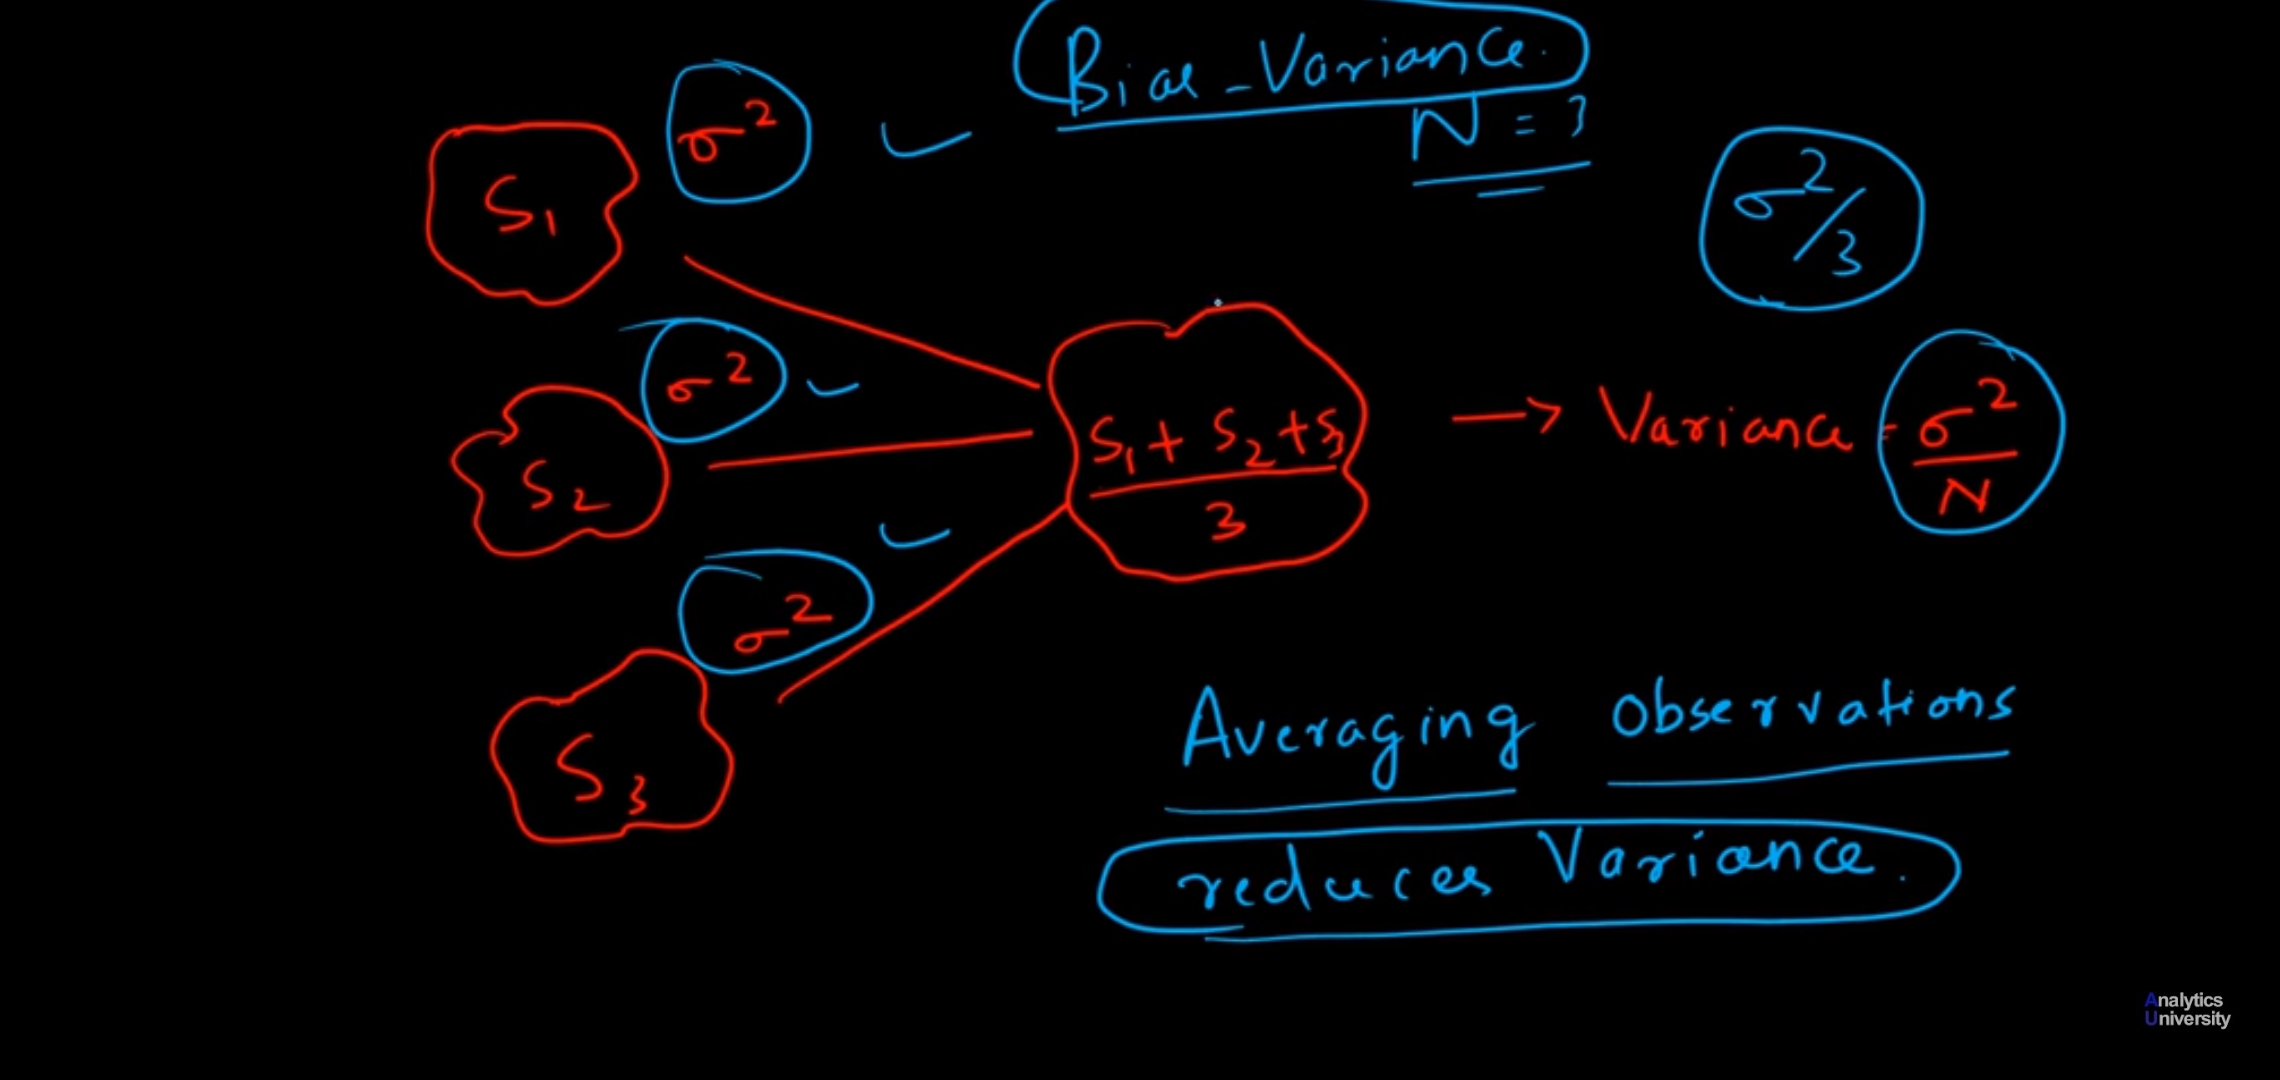 Bias-Variance.
N = 3
σ²
S₁
σ²/3
σ²
S₂
S₁ + S₂ + S₃
3
→ Variance = σ²
N
σ²
S₃
Averaging Observations
reduces Variance.
Analytics
University